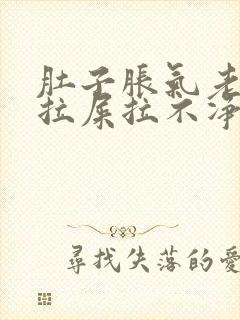 肚子脹氣老
拉屎拉不淨
尋找失落的愛